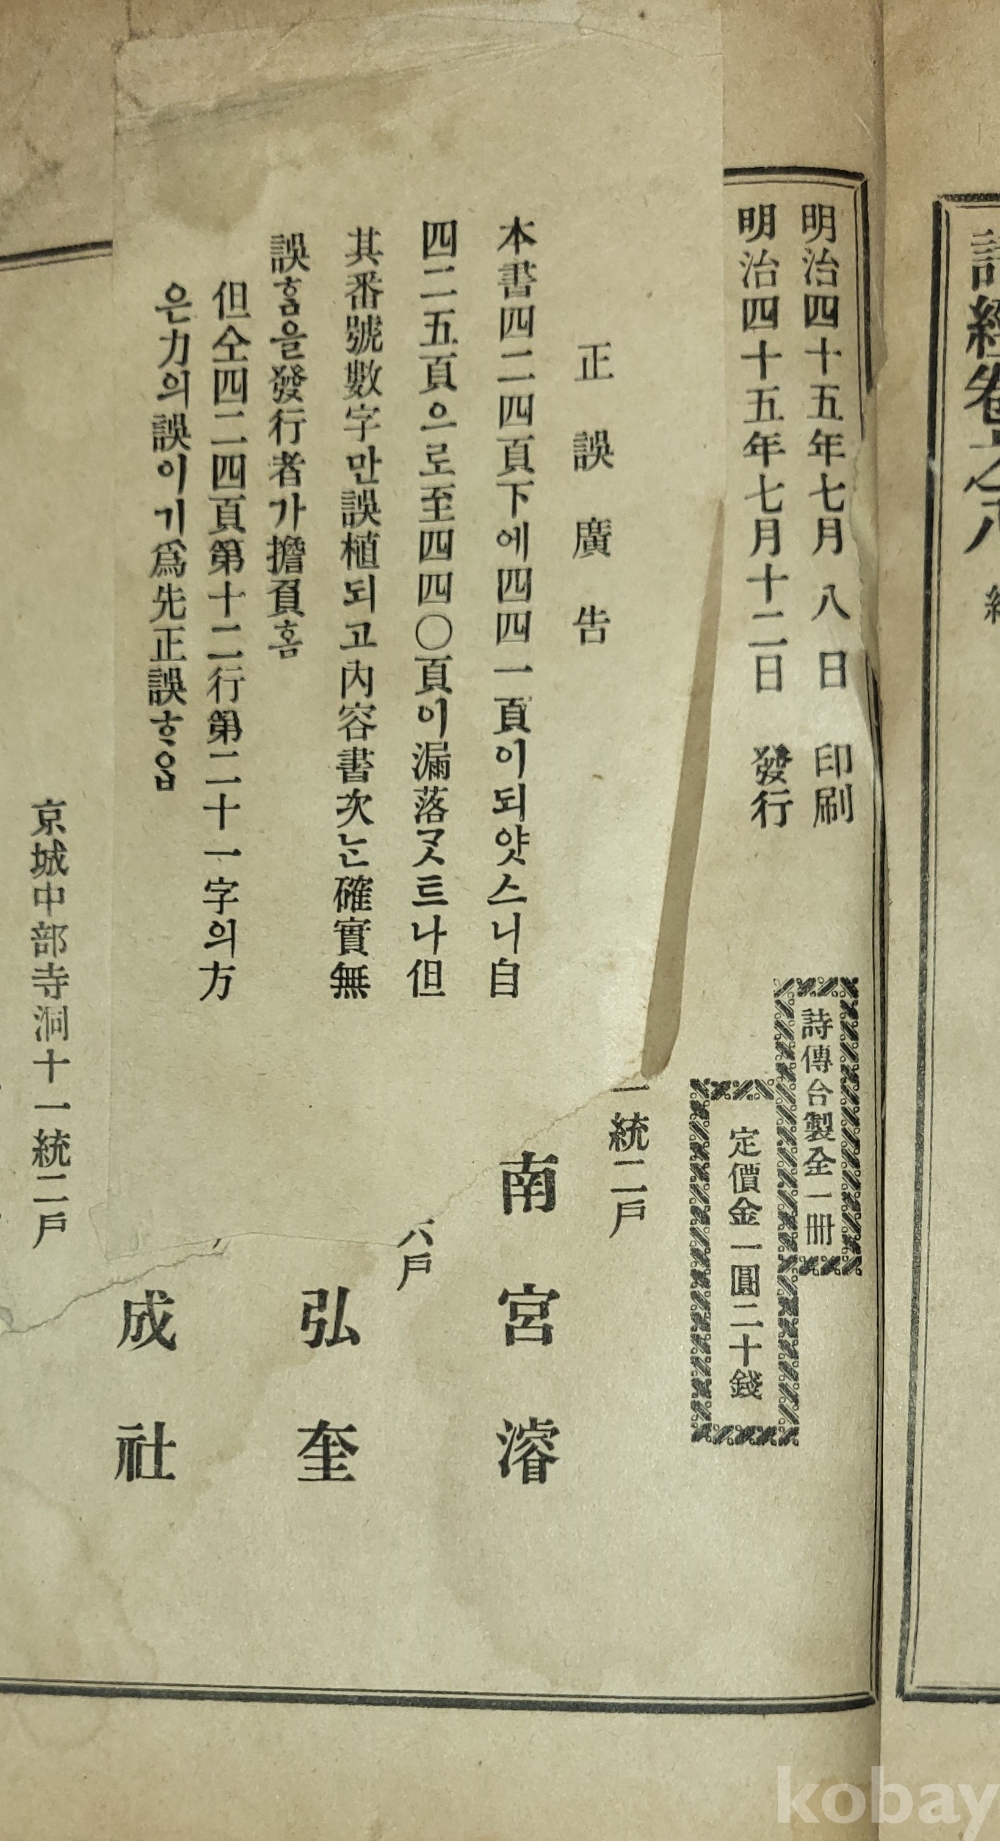 詩經卷之八
明治四十五年七月 八 日 印刷
明治四十五年七月十二日 發行
詩傳合製全一冊
定價金一圓二十錢
正誤廣告
本書四二四頁下에四四一頁이되얏스니自
四二五頁으로至四四〇頁이漏落ᄀᆺ트나但
其番號數字만誤植되고內容書次ᄂᆫ確實無
誤ᄒᆷ을發行者가擔負홈
但仝四二四頁第十二行第二十一字의方
은力의誤이기爲先正誤ᄒᆞ압
一統二戶
南宮濬
六戶
弘奎
成社
京城中部寺洞十一統二戶
kobay